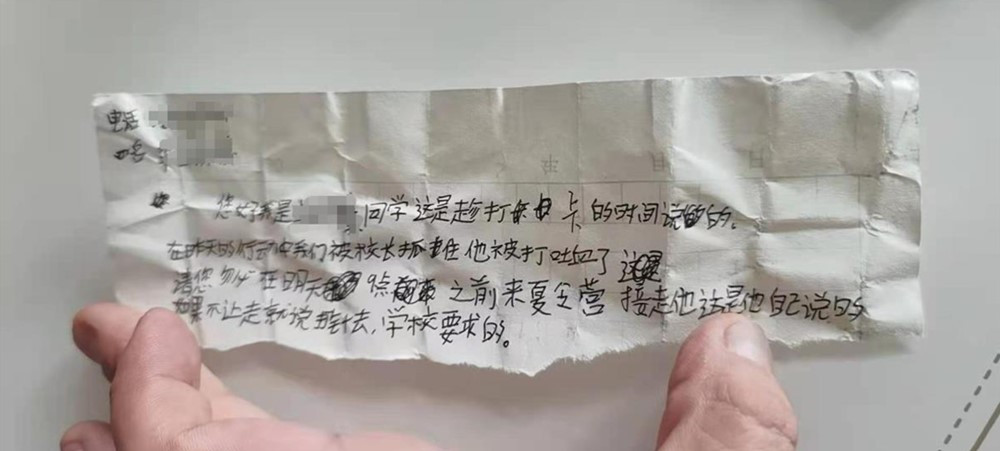 电话
您好我是 同学这是趁打卡的时间说的。
在昨天的行动中我们被校长抓住他被打吐血了
请您务必在明天9点之前来夏令营接走他这是他自己说的
如果不让走就说 去,学校要求的。